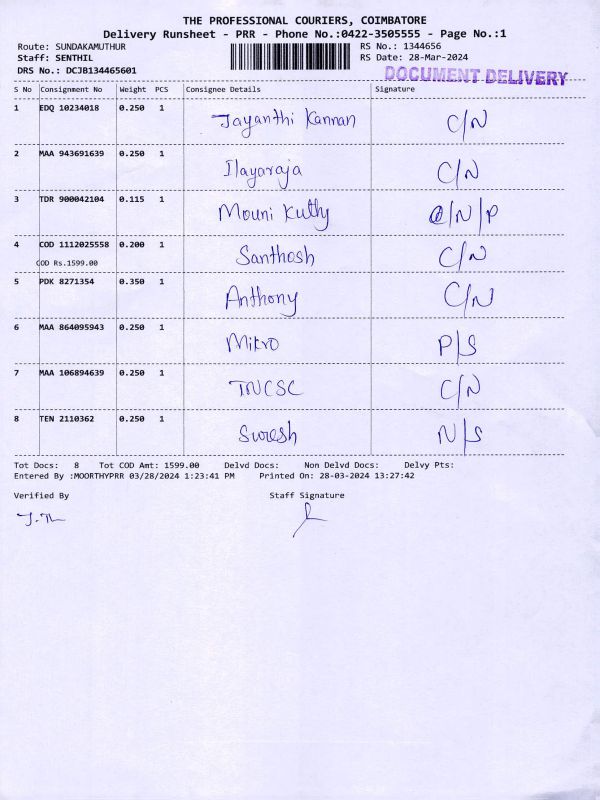 THE PROFESSIONAL COURIERS, COIMBATORE
Delivery Runsheet - PRR - Phone No.:0422-3505555 - Page No.:1
Route: SUNDAKAMUTHUR RS No.: 1344656
Staff: SENTHIL RS Date: 28-Mar-2024
DRS No.: DCJB134465601 DOCUMENT DELIVERY
S No Consignment No Weight PCS Consignee Details Signature
1 EDQ 10234018 0.250 1 Jayanthi Kannan C/N
2 MAA 943691639 0.250 1 Ilayaraja C/N
3 TDR 900042104 0.115 1 Mouni Kutty C/N/P
4 COD 1112025558 0.200 1 Santhosh C/N
COD Rs.1599.00
5 PDK 8271354 0.350 1 Anthony C/N
6 MAA 864095943 0.250 1 Mikro P/S
7 MAA 106894639 0.250 1 TNCSC C/N
8 TEN 2110362 0.250 1 Suresh N/S
Tot Docs: 8 Tot COD Amt: 1599.00 Delvd Docs: Non Delvd Docs: Delvy Pts:
Entered By :MOORTHYPRR 03/28/2024 1:23:41 PM Printed On: 28-03-2024 13:27:42
Verified By Staff Signature